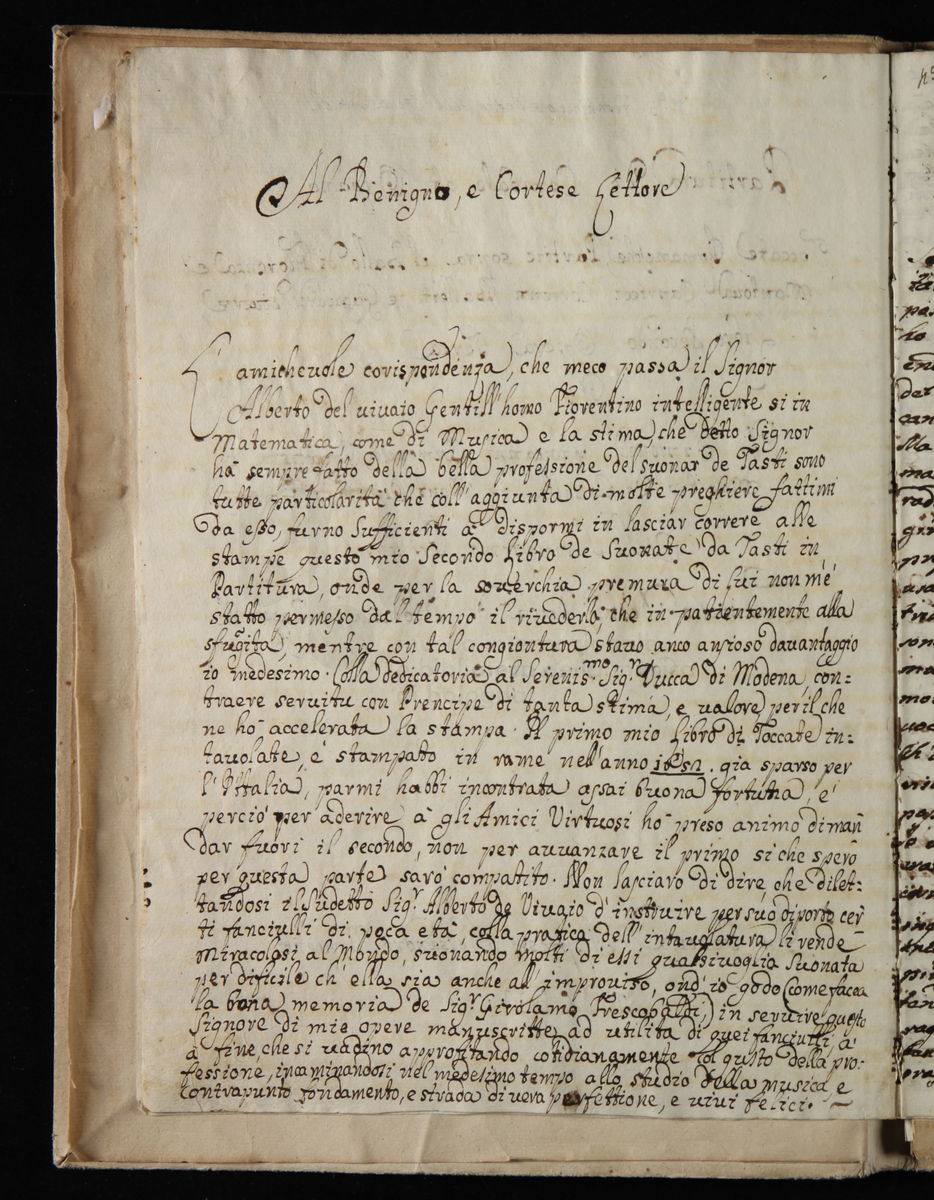 Al Benigno, e Cortese Lettore
L'amicheuole corispondenza, che meco passa il Signor
Alberto del viuaio Gentill'homo Fiorentino intelligente si in
Matematica, come di Musica e la stima, che detto Signor
ha sempre fatto della bella professione del suonar de Tasti sono
tutte particolarità che coll'aggiunta di molte preghiere fattimi
da esso, furno sufficienti à dispormi in lasciar correre alle
stampe questo mio Secondo Libro de Suonate da Tasti in
Partitura, onde per la souerchia premura di lui non m'è
statto permesso dal tempo il riuederlo, che in patientemente alla
sfugita, mentre con tal congiontura stauo anco ansioso dauantaggio
io medesimo. Colla dedicatoria al Serenis.mo Sig.r Ducca di Modena, con=
traere seruitu con Prencipe di tanta stima, e ualore, per il che
ne hò accelerata la stampa. Il primo mio libro di Toccate in=
tauolate, è stampato in rame nell'anno già sparso per
l'Ittalia, parmi habbi incontrata assai buona fortuna, e
perciò per aderire à gli Amici Virtuosi hò preso animo di man
dar fuori il secondo, non per auuanzare il primo si che sperò
per questa parte sarò compattito. Non lasciarò di dire, che dilet=
tandosi il sudetto Sig.r Alberto de Viuaio d'instruire per suo diporto cer
ti fanciulli di poca età, colla pratica dell'intauolatura li rende
miracolosi al Mondo, suonando molti di essi qualsiuoglia Suonata
per dificile ch'ella sia anche all'improuiso, ond'io godo (come facea
la bona memoria de Sig.r Girolamo Frescobaldi,) in seruire questo
Signore di mie opere manuscritte, ad utilità di quei fanciulli, à
à fine, che si uadino approfitando cotidianamente col gusto della pro=
fessione, incaminandosi nel medesimo tempo allo studio della musica, e
Contrapunto fondamento, e strada di uera perfettione, e uiui felici.